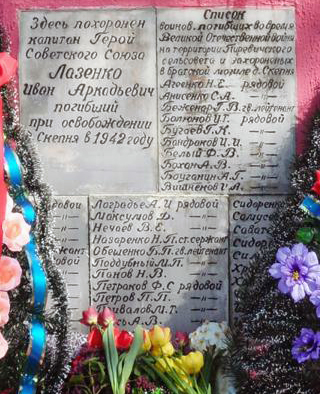 Здесь похоронен
капитан Герой
Советского Союза
Лазенко
Иван Аркадьевич
погибший
при освобождении
д Скепня в 1942 году
Список
воинов, погибших во время
Великой Отечественной войны
на территории Пиревичского
сельсовета и захороненных
в братской могиле д. Скепня
Агеенко Н.Е. рядовой
Анисенко С.А. –"–
Беженар Г.В. гв. лейтенант
Болюнов И.Г. рядовой
Бугаев Г.К. –"–
Бондраков И.И. –"–
Белый Ф.В. –"–
Бохан А.В. –"–
Боуганин А.Г. –"–
Вишнёнов И.А. –"–
Лагредье А.И. рядовой
Максумов Д. –"–
Нечаев В.Е. –"–
Назаренко Н.П. ст. сержант
Обещенко Б.П. гв. лейтенант
Поддубный М.П. –"–
Панов Н.В. –"–
Петраков Ф.С. рядовой
Петров П.П. –"–
Привалов М.Т. –"–
Сидоренко